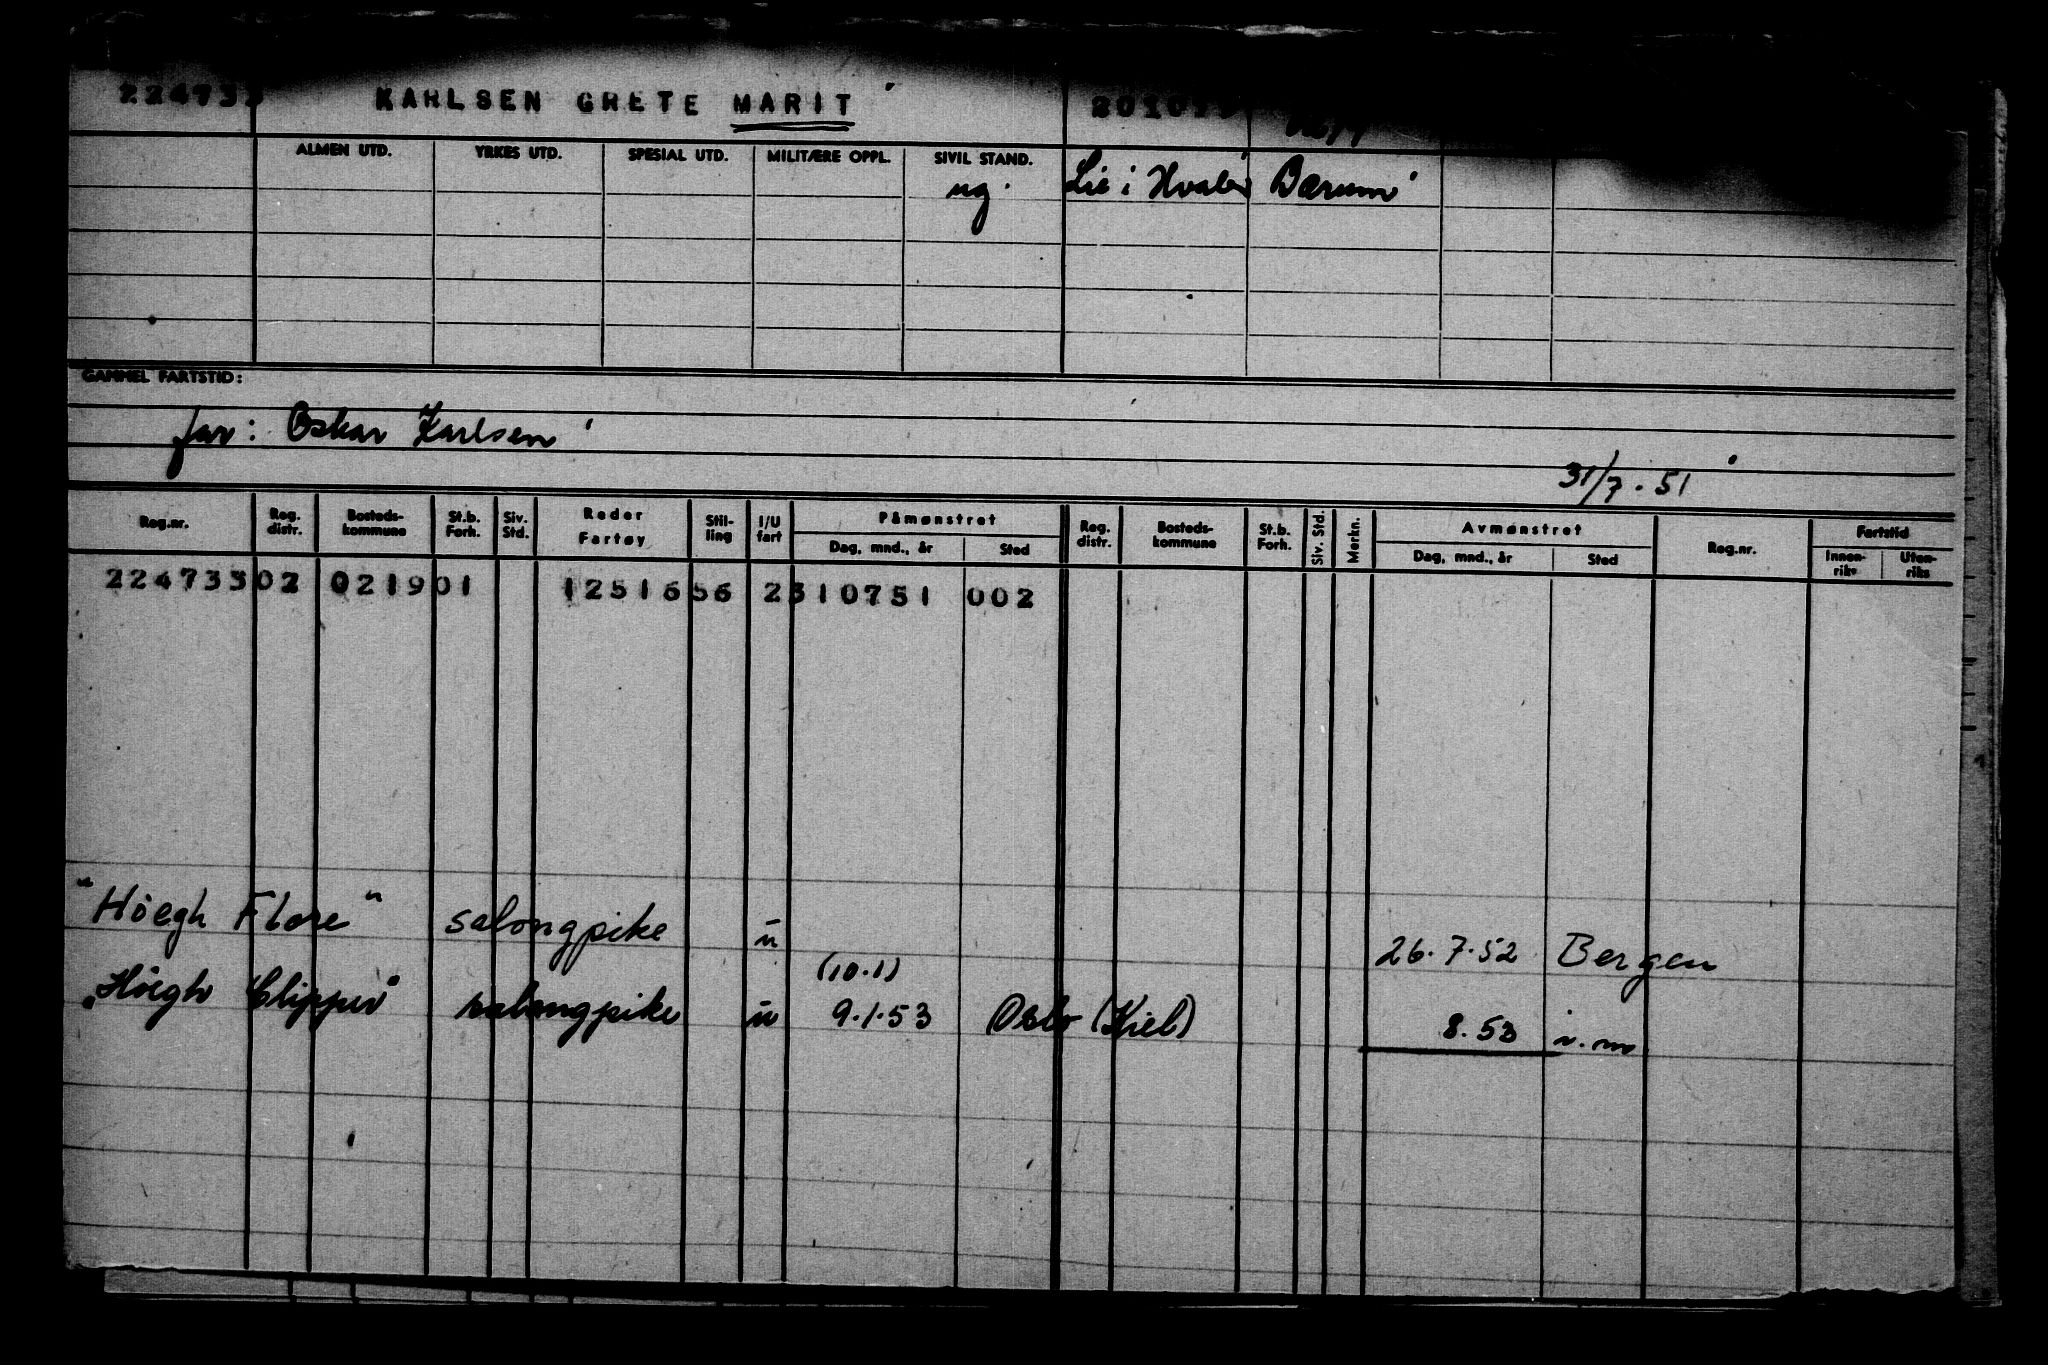 224733 KARLSEN GRETE MARIT
ALMEN UTD. YRKES UTD. SPESIAL UTD. MILITÆRE OPPL. SIVIL STAND.
ug. Lie i Hvaler Bærum
GAMMEL FARTSTID:
far: Oskar Karlsen
31/7.51
Reg.nr. Reg. distr. Bosteds-kommune St.b. Forh. Siv. Std. Reder Fartøy Stil-ling I/U fart Påmønstret Dag, mnd., år Sted Reg. distr. Bosteds-kommune St.b. Forh. Siv. Std. Merkn. Avmønstret Dag, mnd., år Sted Reg.nr. Fartstid Innen-riks Uten-riks
224733 02 0219 01 1251656 2 310751 002
"Höegh Flare" salongpike u 26.7.52 Bergen
(10.1)
"Höegh Clipper" salongpike u 9.1.53 Oslo (Kiel) 8.53 n.m